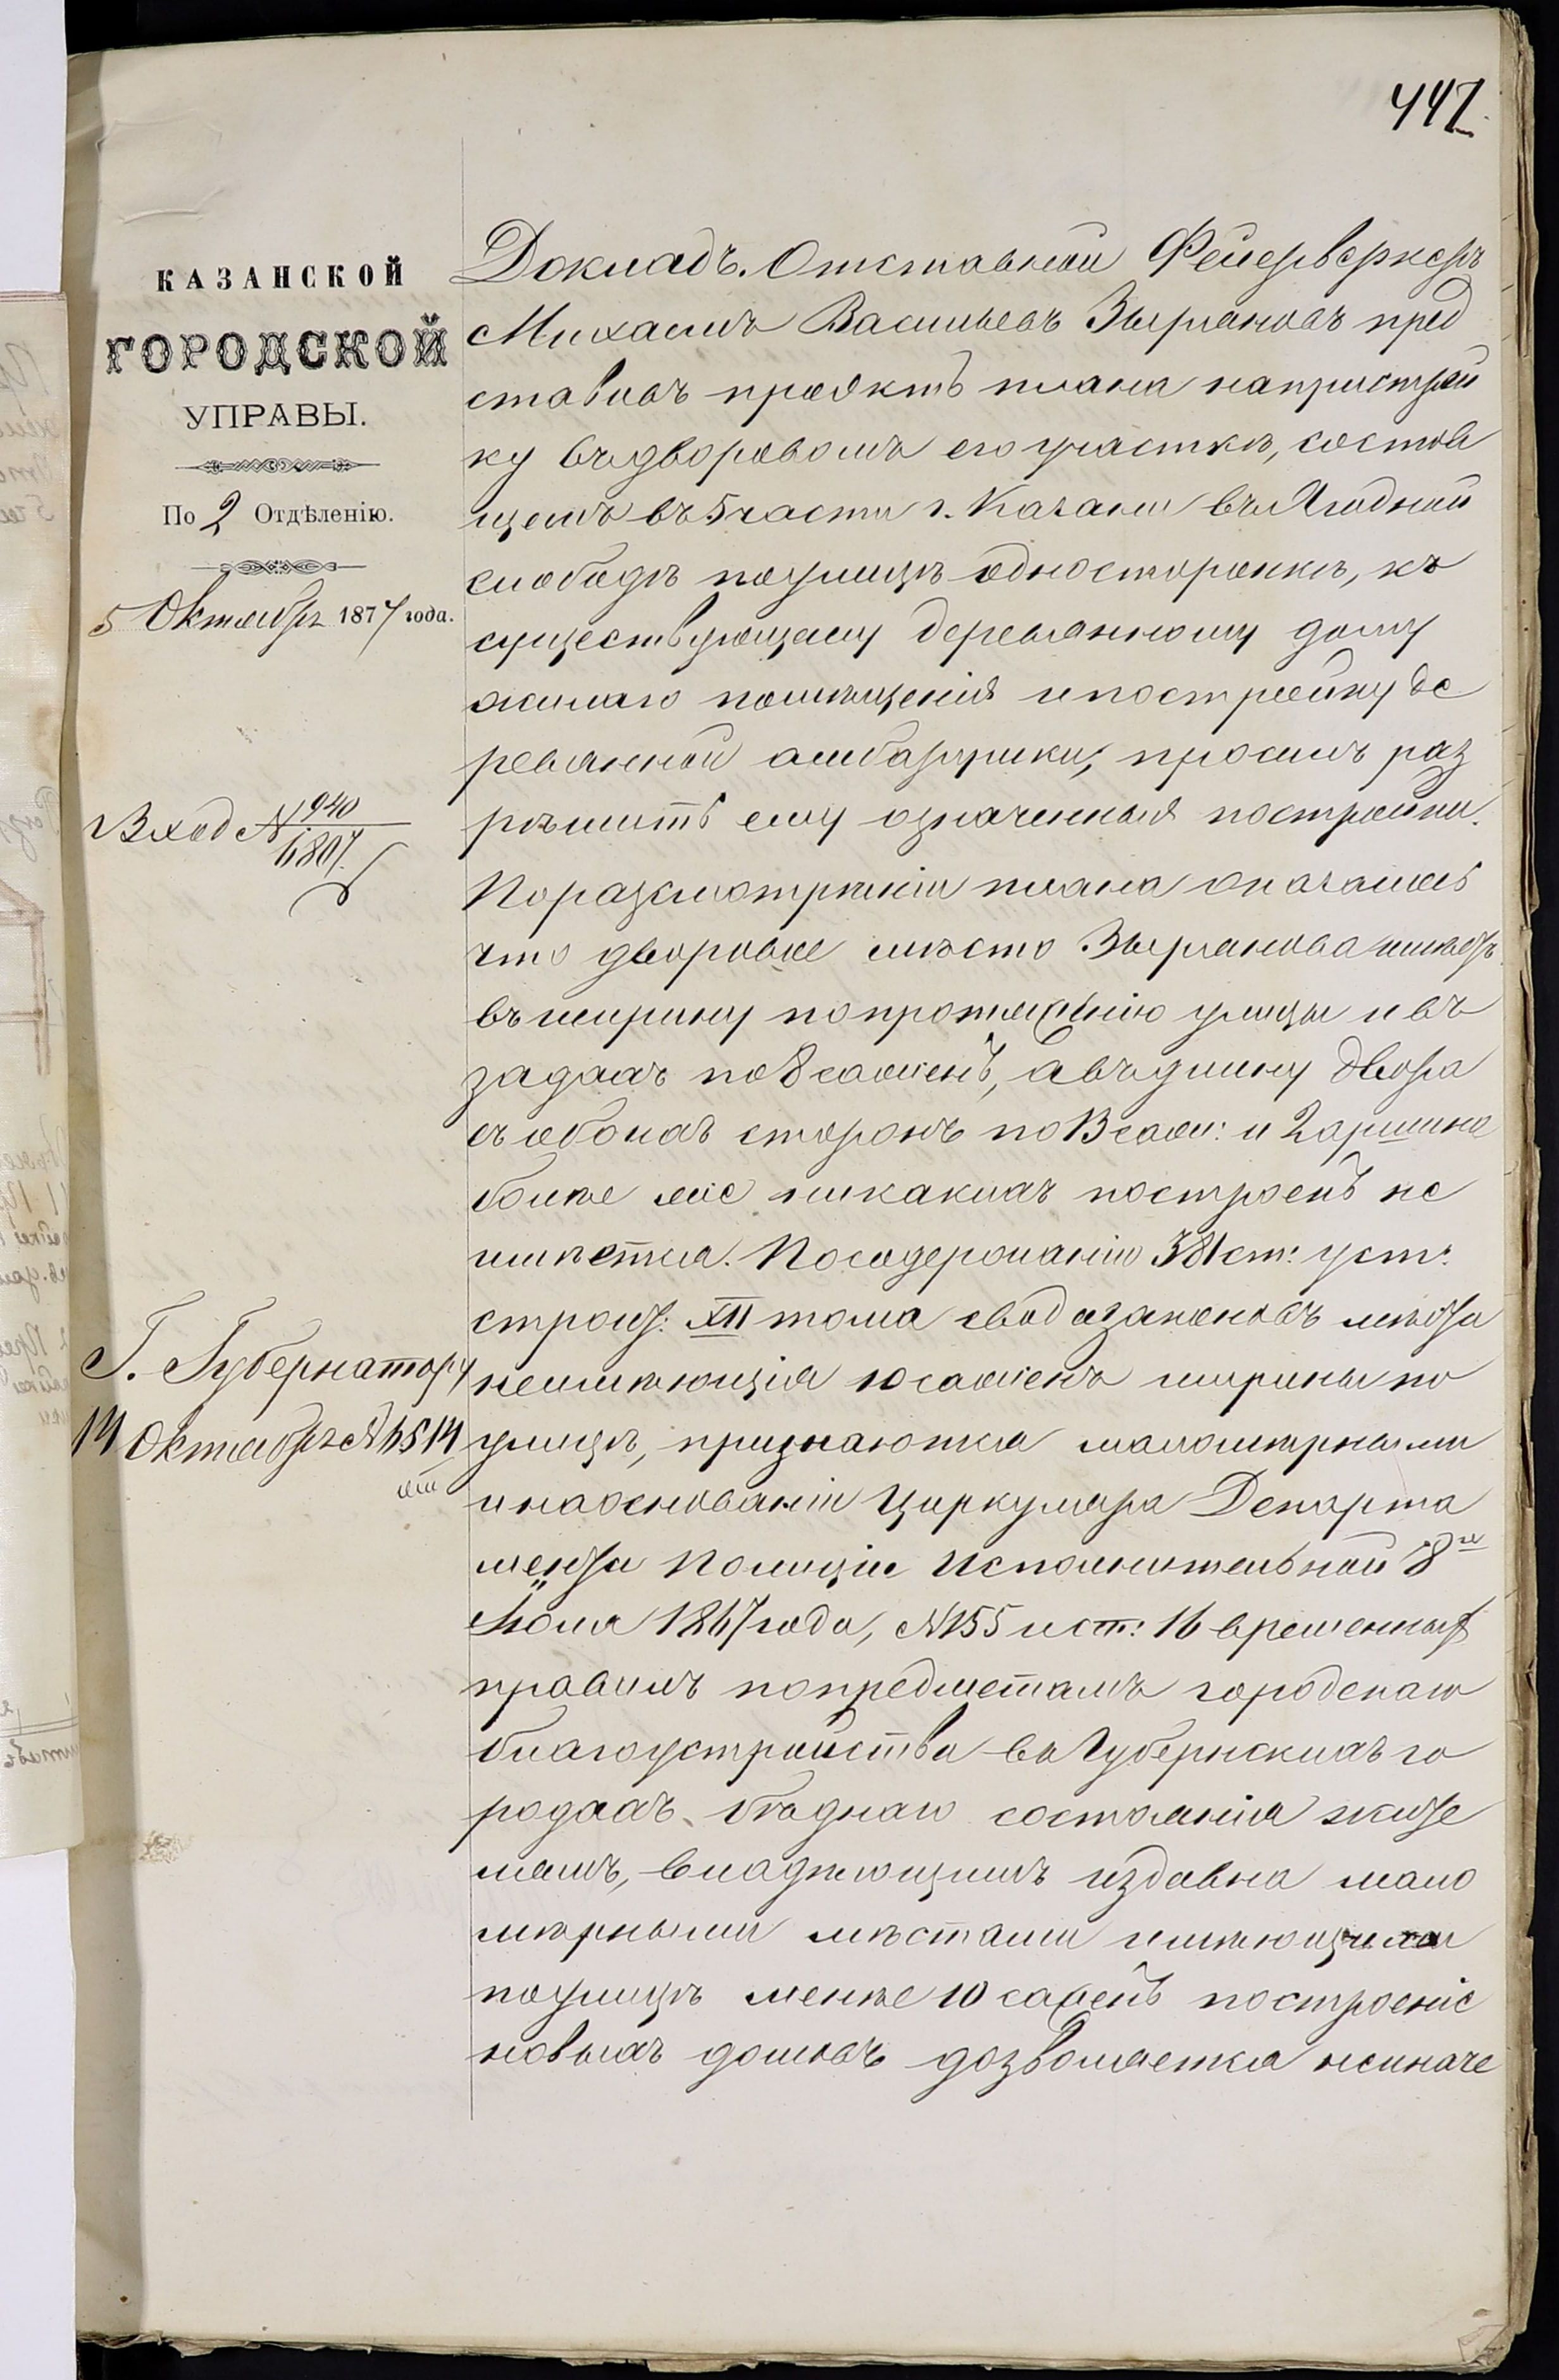 442.
КАЗАНСКОЙ
ГОРОДСКОЙ
УПРАВЫ.
По 2 Отдѣленію.
5 Октября 1877 года.
Вход № 940
6807.
Г. Губернатору
14 Октября № 6514
Докладъ. Отставной Фейерверкеръ
Михаилъ Васильевъ Зыряновъ пред
ставивъ проэктъ плана на пристрой
ку въ дворовомъ его участкѣ, состоя
щемъ въ 5 части г. Казани въ Ягодной
слободѣ по улицѣ односторонкѣ, къ
существующему деревянному дому
жилаго помѣщенія и постройку де
ревянной амбарушки, проситъ раз
рѣшить ему означенныя постройки.
По разсмотрѣнiи плана оказалось
что дворовое мѣсто Зырянова имѣетъ
въ ширину по протяженію улицы и въ
задахъ по 8 сажень, а въ длину двора
съ обоихъ сторонъ по 13 саж: и 2 аршина
болѣе же никакихъ построекъ не
имѣется. По содержанію 381 ст: уст:
строит: XII тома свода законовъ мѣста
неимѣющія 10 сажень ширины по
улицѣ, признаются маломѣрными
и на основаніи Циркуляра Департа
мента Полиціи Исполнительной 8го
Іюля 1867 года, № 155 и ст: 16 временныхъ
правилъ по предметамъ городскаго
благоустройства въ Губернскихъ го
родахъ бѣднаго состоянія жите
лямъ, владѣющимъ издавна мало
мѣрными мѣстами имѣющими
по улицѣ менѣе 10 сажень построеніе
новыхъ домовъ дозволяется неиначе